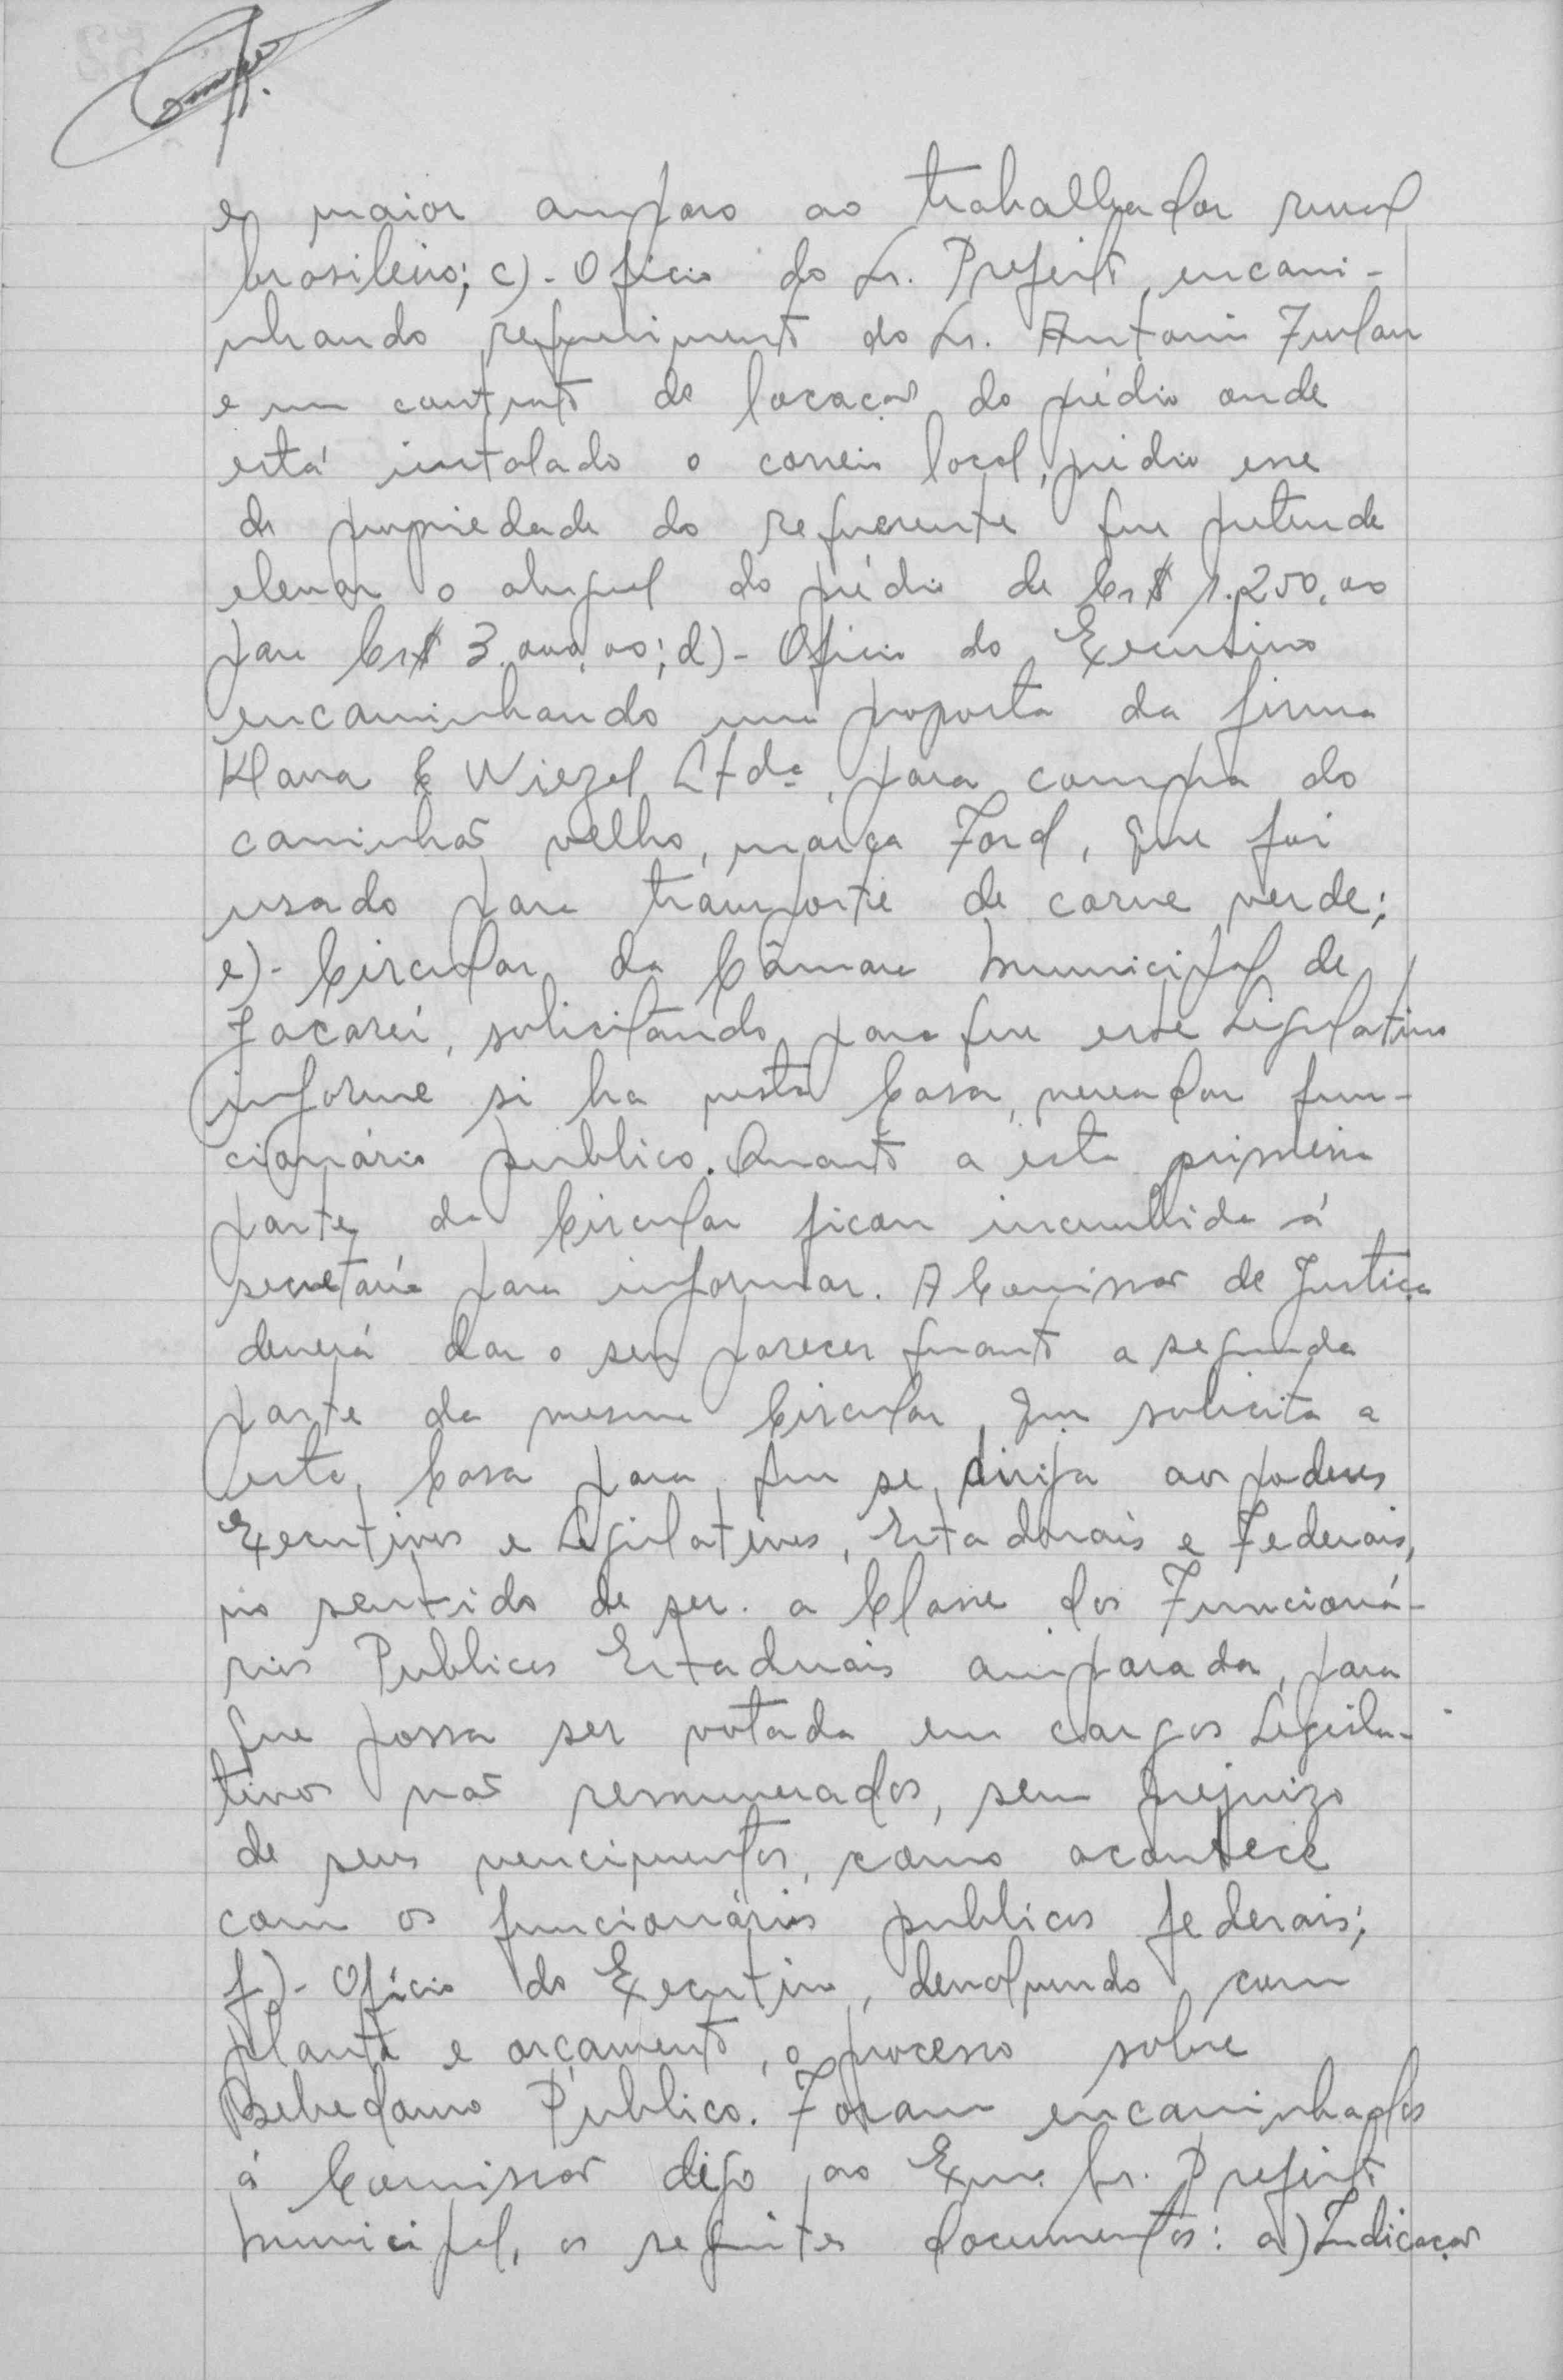 e maior amparo ao trabalhador rural
brasileiro; c)- Oficio do Sr. Prefeito, encami-
nhando requerimento do Sr. Antonio Furlan
e um contrato de locação do prédio onde
está instalado o correio local, prédio esse
de propriedade do requerente que pretende
elevar o aluguel do prédio de Cr$ 1.250,00
para Cr$ 3.000,00; d)- Oficio do Executivo
encaminhando uma proposta da firma
& Wiezel Ltdª, para compra do
caminhão velho, marca Ford, que foi
usado para transporte de carne verde;
e)- Circular da Câmara Municipal de
Jacareí, solicitando para que este Legislativo
informe si ha nesta Casa, vereador fun-
cionário publico. Quanto a esta primeira
parte da Circular ficou incumbida á
secretaria para informar. A Comissão de Justiça
deverá dar o seu parecer quanto a segunda
parte da mesma Circular, que solicita a
esta Casa para que se dirija aos poderes
Executivos e Legislativos, Estaduais e Federais,
no sentido de ser a Classe dos Funcioná-
rios Publicos Estaduais amparada, para
que possa ser votada em cargos Legisla-
tivos não remunerados, sem prejuizo
de seus vencimentos, como acontece
com os funcionários publicos federais;
f)- Ofício do Executivo, devolvendo com
planta e orçamento, o processo sobre
Bebedouro Público. Foram encaminhados
á Comissão digo ao Exmo. Sr. Prefeito
Municipal, os seguintes documentos: a) Indicação